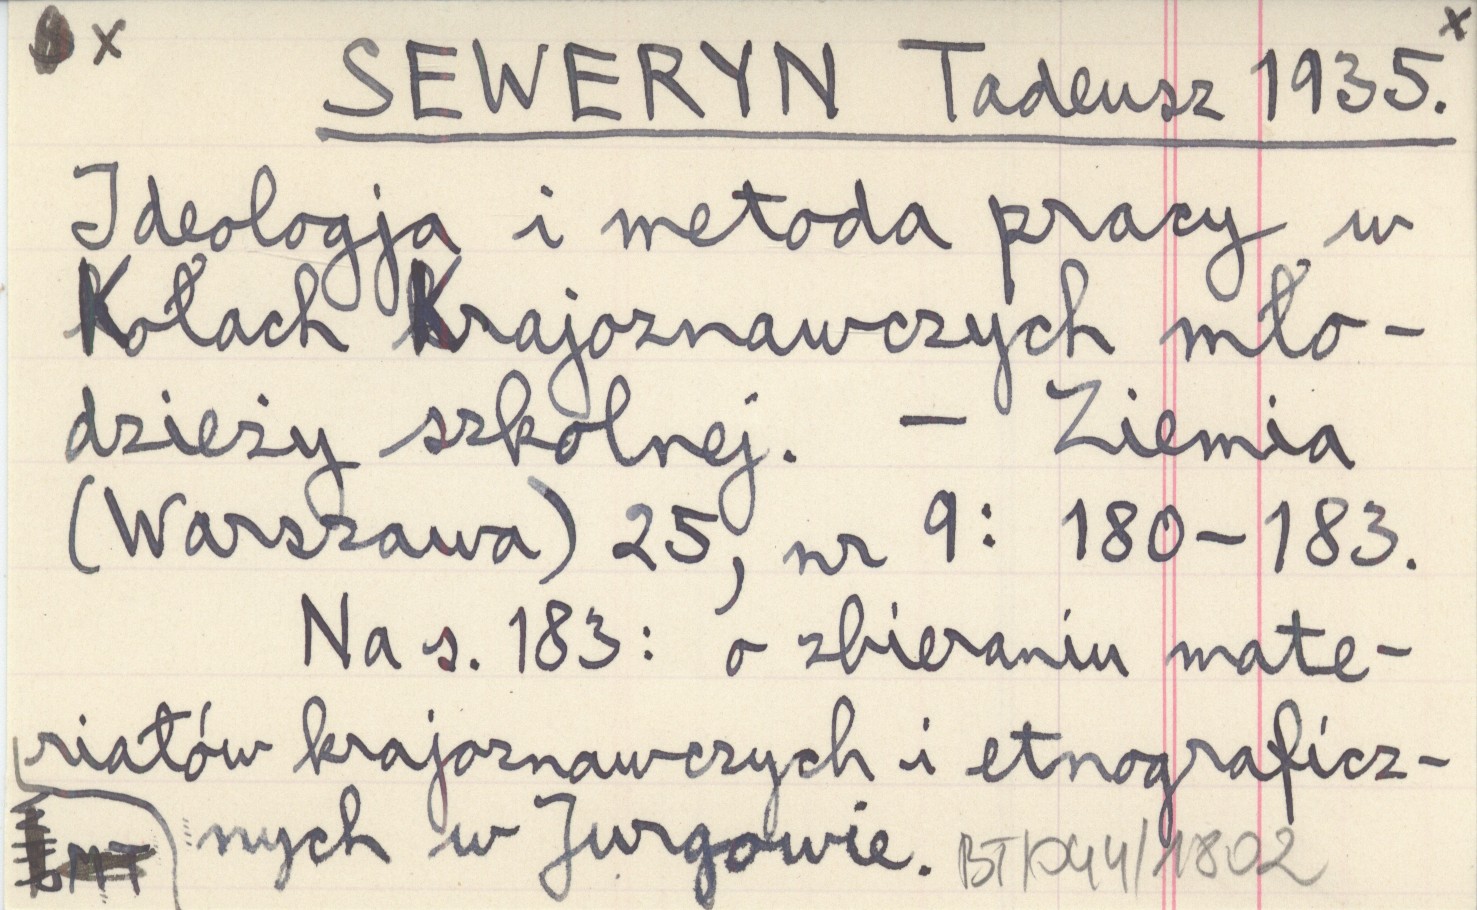 x x
SEWERYN Tadeusz 1935.
Ideologja i metoda pracy w
Kołach Krajoznawczych mło-
dzieży szkolnej. – Ziemia
(Warszawa) 25, nr 9: 180–183.
Na s. 183: o zbieraniu mate-
riałów krajoznawczych i etnograficz-
nych w Jurgowie.
BT/044/1802